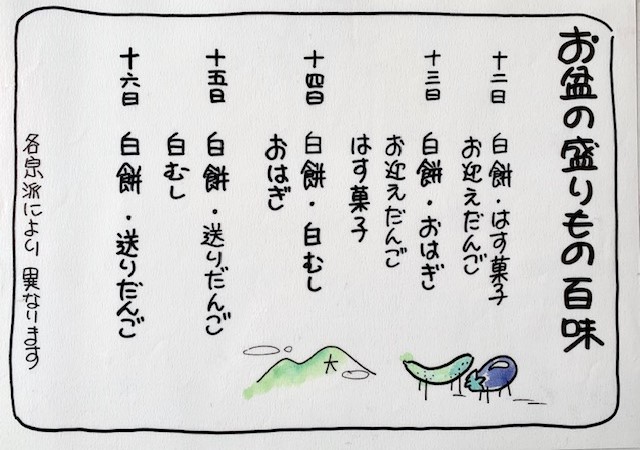 お盆の盛りもの百味
十二日 白餅・はす菓子
お迎えだんご
十三日 白餅・おはぎ
お迎えだんご
はす菓子
十四日 白餅・白むし
おはぎ
十五日 白餅・送りだんご
白むし
十六日 白餅・送りだんご
各宗派により異なります
大